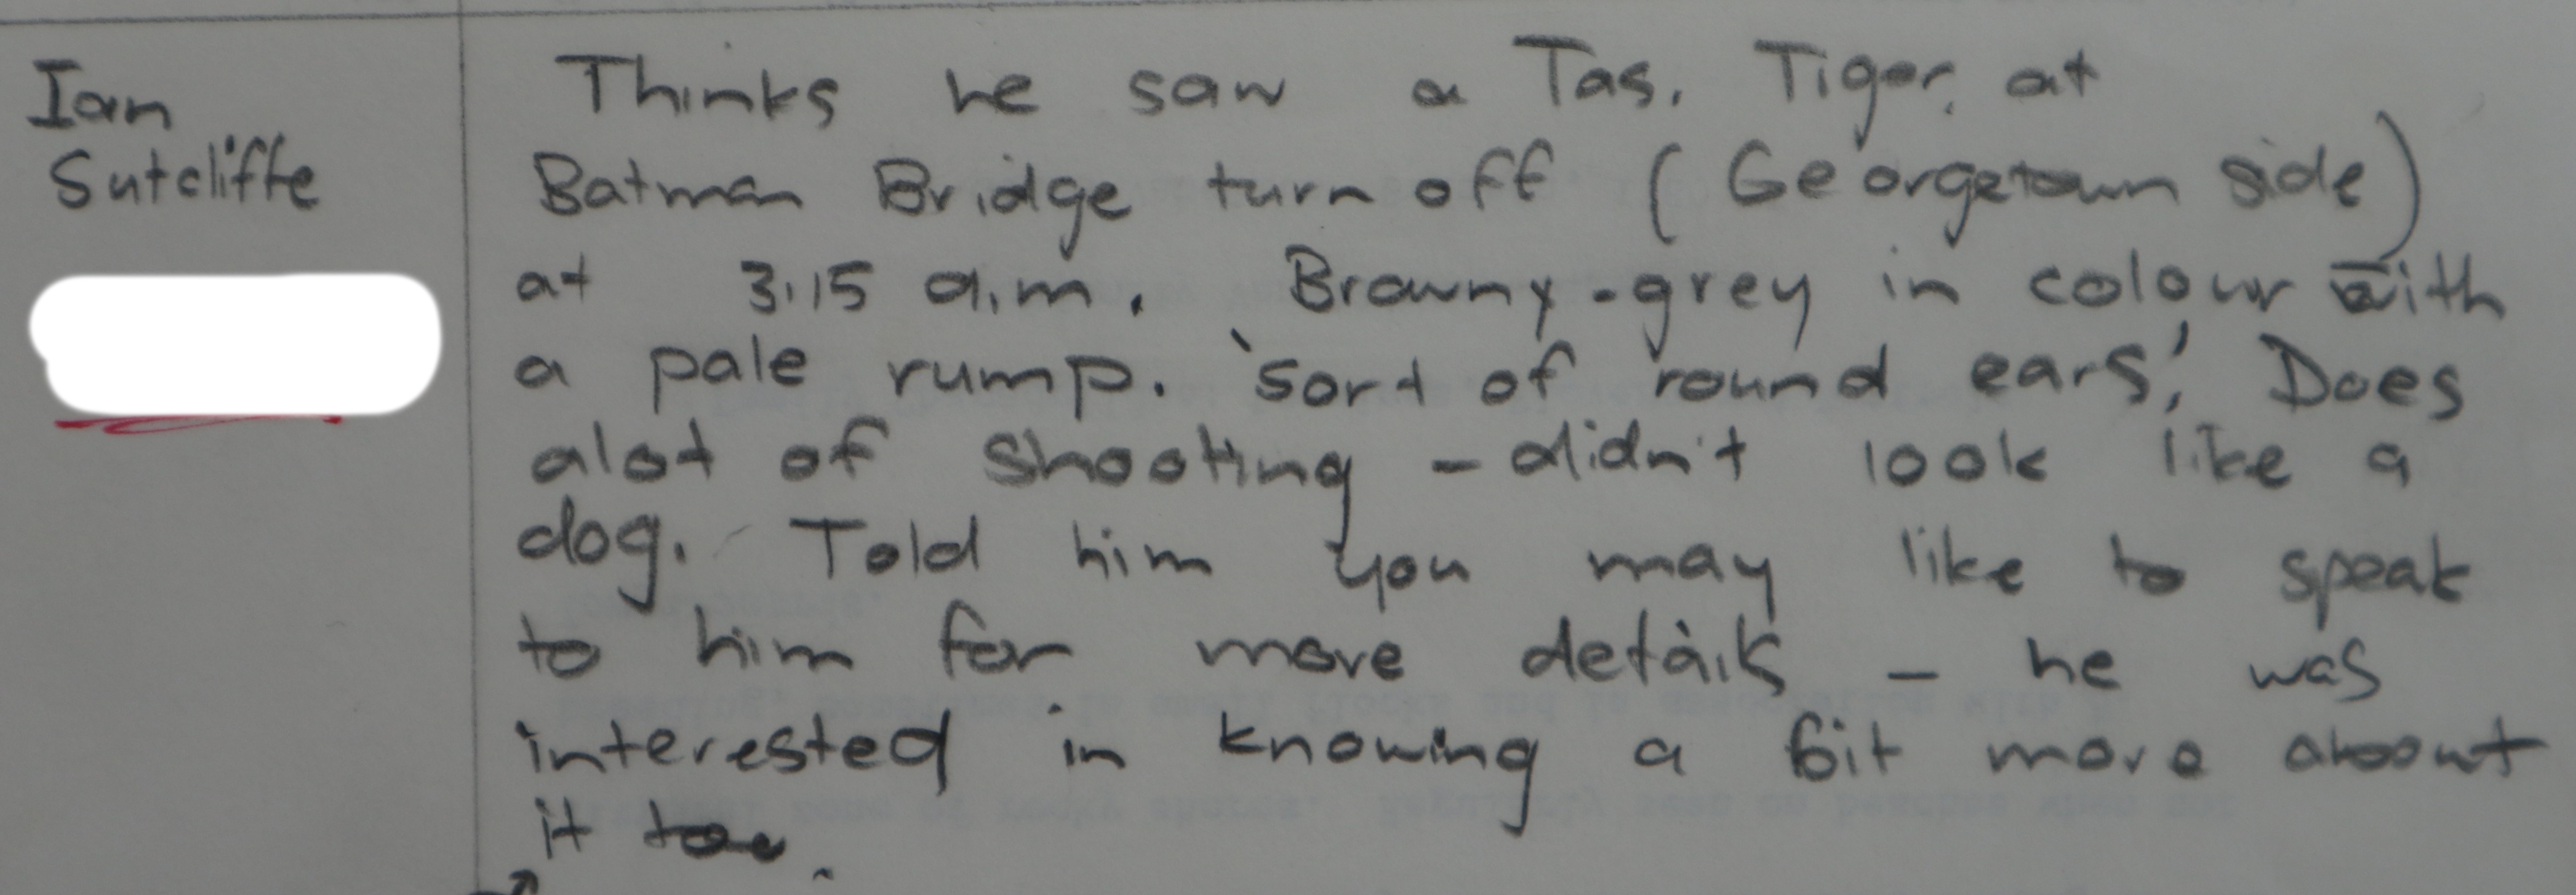 Ian
Sutcliffe
Thinks he saw a Tas. Tiger. at
Batman Bridge turn off (Georgetown side)
at 3.15 a.m. Browny-grey in colour with
a pale rump. 'sort of round ears'. Does
alot of shooting - didn't look like a
dog. Told him you may like to speak
to him for more details - he was
interested in knowing a bit more about
it too.